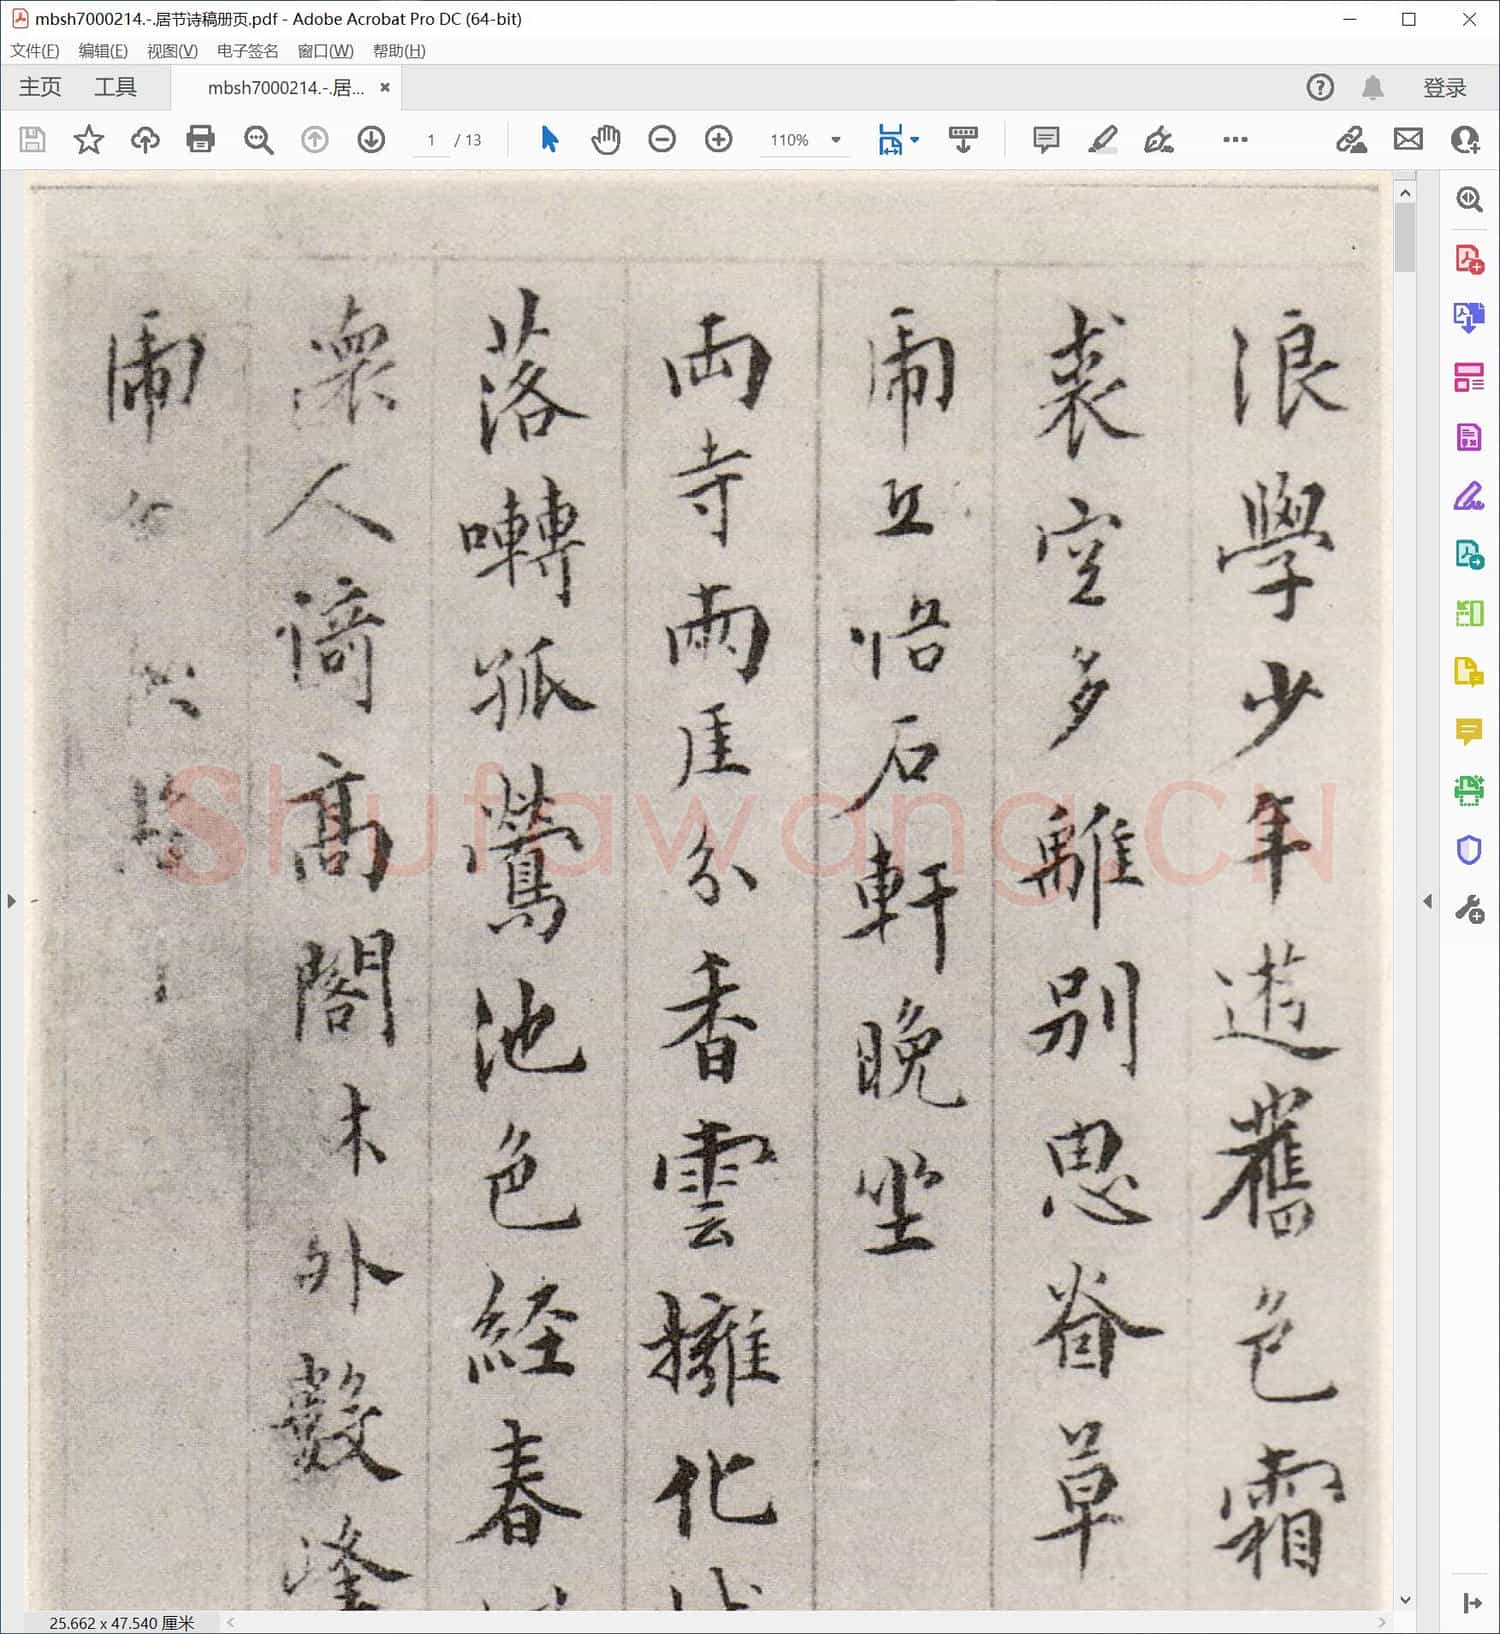 mbsh7000214.-.居节诗稿册页.pdf - Adobe Acrobat Pro DC (64-bit)
文件(F) 编辑(E) 视图(V) 电子签名 窗口(W) 帮助(H)
主页 工具 mbsh7000214.-.居... × 登录
1 / 13 110%
浪學少年遊舊色霜
裘空多離別思草
乕丘悟石軒晚坐
兩寺兩厓分香雲擁化
落囀孤鶯池色経春
懷人倚高閣木外數峰
乕
Shufawang.CN
25.662 x 47.540 厘米